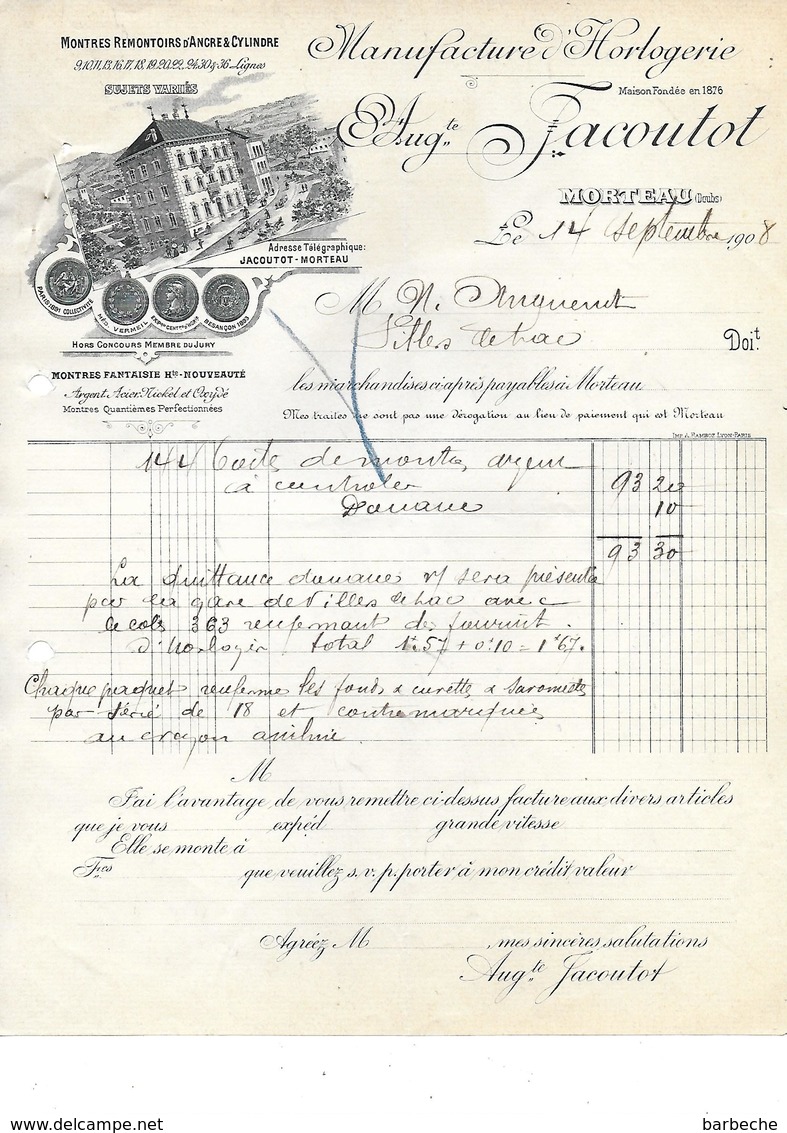 MONTRES REMONTOIRS D'ANCRE & CYLINDRE
9, 10, 11, 13, 16, 17, 18, 19, 20, 22, 24, 30 & 36 Lignes
SUJETS VARIÉS
Manufacture d'Horlogerie
Maison Fondée en 1876
Aug.te Jacoutot
MORTEAU (Doubs)
Le 14 septembre 1908
Adresse Télégraphique:
JACOUTOT-MORTEAU
PARIS 1891 COLLECTIVITÉ
MÉD. VERMEIL
BESANÇON 1893
HORS CONCOURS MEMBRE DU JURY
M N. Anguenot
Villers le lac
Doit
MONTRES FANTAISIE Hte-NOUVEAUTÉ
Argent, Acier, Nickel et Oxydé
Montres Quantièmes Perfectionnées
les marchandises ci-après payables à Morteau
Mes traites ne sont pas une dérogation au lieu de paiement qui est Morteau
144 boites de montres argent
à controler 93 20
Douane 10
93 30
La quittance douane sera présentée
par la gare de Villers le lac avec
le colis 363 renfermant des fournit.
d'horloger total 1f.57 + 0f10 = 1f67.
Chaque paquet renferme les fonds & cuvettes &
par série de 18 et contremarqués
au crayon aniline
M
J'ai l'avantage de vous remettre ci-dessus facture aux divers articles
que je vous expéd grande vitesse
Elle se monte à
Fcs que veuillez s.v.p. porter à mon crédit valeur
Agréez M , mes sincères salutations
Aug.te Jacoutot
delcampe.net
barbeche